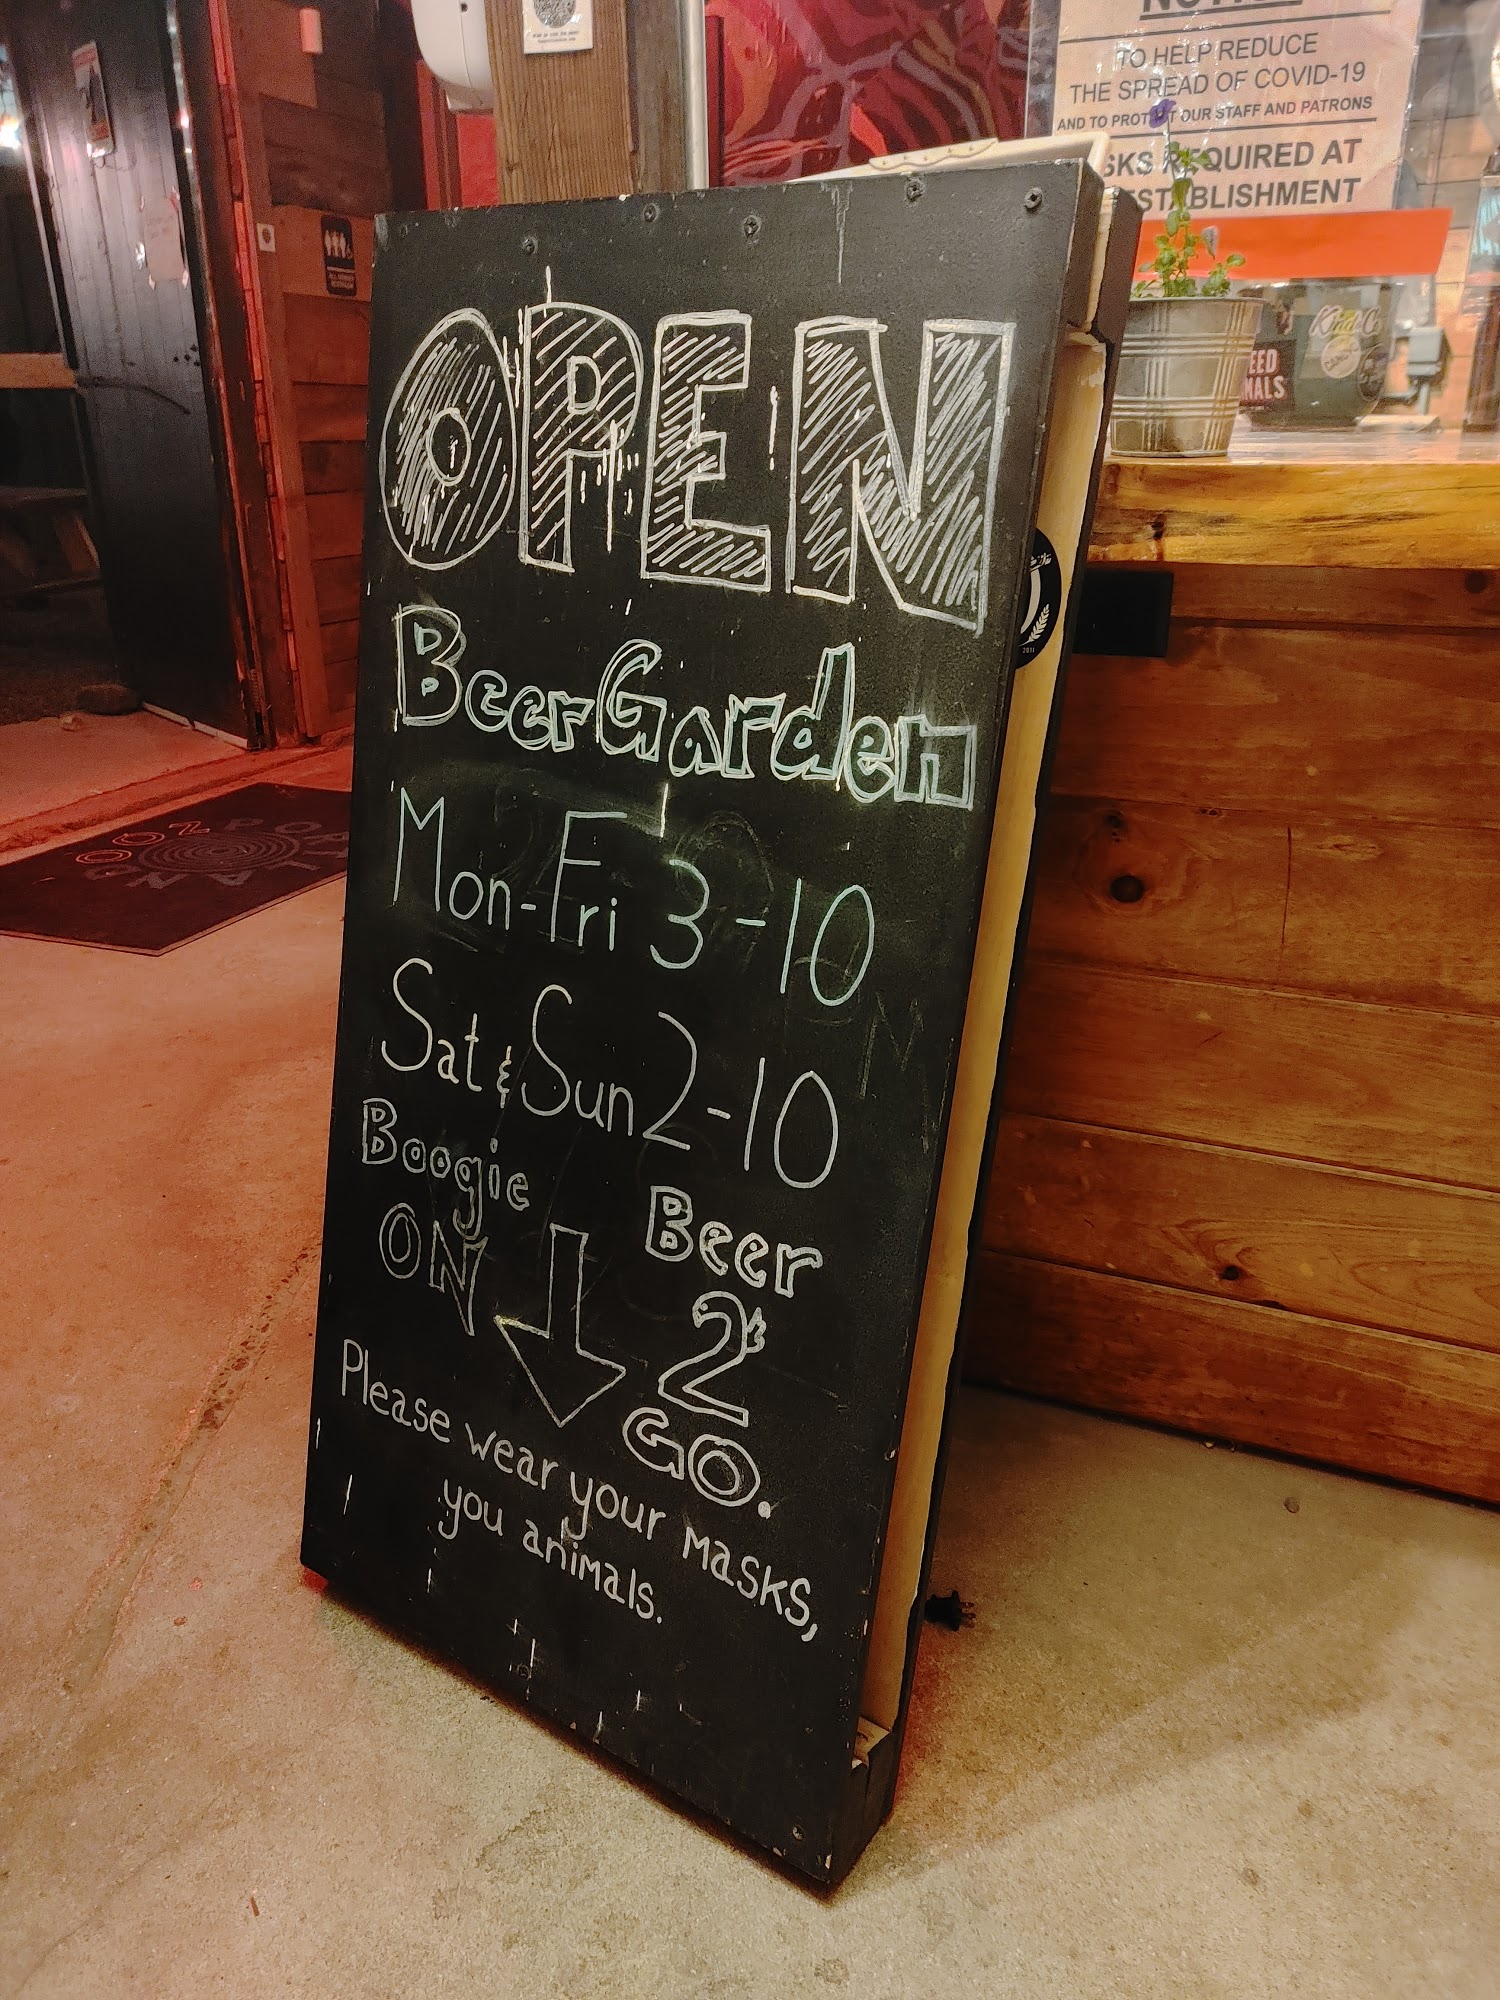 TO HELP REDUCE
THE SPREAD OF COVID-19
AND TO PROTECT OUR STAFF AND PATRONS
REQUIRED AT
OPEN
Beer Garden
Mon-Fri 3-10
Sat & Sun 2-10
Boogie
ON
Beer
2
GO.
Please wear your masks,
you animals.
Kind Co
2011